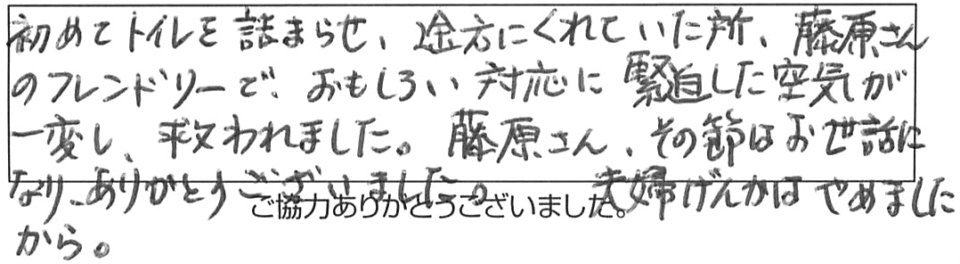 初めてトイレを詰まらせ、途方にくれていた所、藤原さん
のフレンドリーで、おもしろい対応に緊迫した空気が
一変し、救われました。藤原さん、その節はお世話に
なり、ありがとうございました。夫婦げんかはやめました
ご協力ありがとうございました。
から。